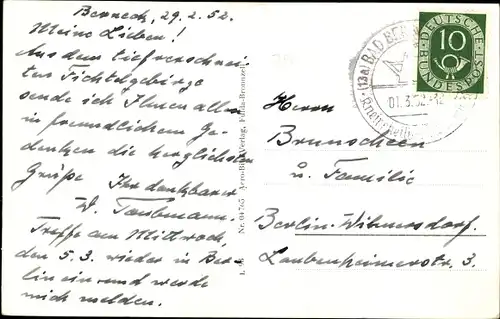 Berneck, 29.2.52.
Meine Lieben!
Aus dem tief verschnei-
ten Fichtelgebirge
sende ich Ihnen allen
in freundlichem Ge-
denken die herzlichsten
Grüße Ihr dankbarer
W. Taubmann.
Treffe am Mittwoch,
den 5.3. wieder in Ber-
lin ein und werde
mich melden.
Nr. 04765 Aero-Bild-Verlag, Fulda-Bronnzell
(13a) BAD BERNECK
01.3.52
DEUTSCHE BUNDESPOST
10
Herrn
Brunscheen
u. Familie
Berlin-Wilmersdorf.
Laubenheimerstr. 3.